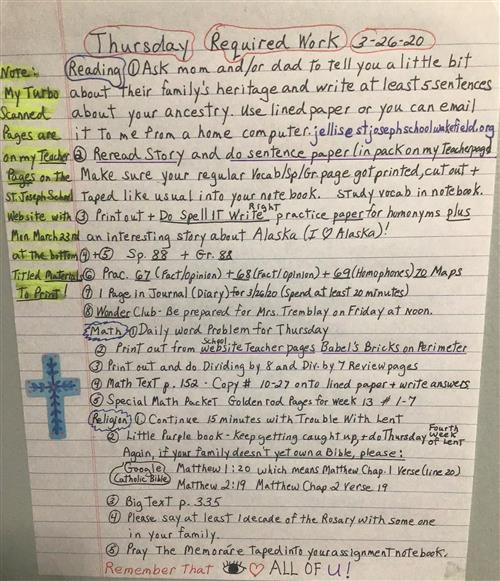 Thursday Required Work 3-26-20
Note:
My Turbo
Scanned
Pages are
on my Teacher
Pages on the
St. Joseph School
Website with
Mon March 23rd
at the bottom
Titled Materials
To Print!
Reading ① Ask mom and/or dad to tell you a little bit
about their family's heritage and write at least 5 sentences
about your ancestry. Use lined paper or you can email
it to me from a home computer. jellis@stjosephschoolwakefield.org
② Reread Story and do sentence paper (in pack on my Teacher page)
Make sure your regular Vocab/Sp/Gr. page got printed, cut out +
Taped like usual into your note book. Study vocab in notebook.
③ Print out + Do Spell IT Write Right practice paper for homonyms plus
an interesting story about Alaska (I ♡ Alaska)!
④+⑤ Sp. 88 + Gr. 88
⑥ Prac. 67 (Fact/opinion) + 68 (Fact/opinion) + 69 (Homophones) 70 Maps
⑦ 1 Page in Journal (Diary) for 3/26/20 (Spend at least 20 minutes)
⑧ Wonder Club - Be prepared for Mrs. Tremblay on Friday at Noon.
Math ① Daily word Problem for Thursday
② Print out from School website Teacher pages Babel's Bricks on Perimeter
③ Print out and do Dividing by 8 and Div. by 7 Review pages
④ Math Text p. 152 - Copy # 10-27 onto lined paper + write answers
⑤ Special Math Packet Golden rod Pages for Week 13 # 1-7
Religion ① Continue 15 minutes with Trouble With Lent
② Little Purple book - Keep getting caught up, + do Thursday Fourth Week of Lent
Again, if your family doesn't yet own a Bible, please:
Google Catholic Bible
Matthew 1:20 which means Matthew Chap. 1 Verse (line 20)
Matthew 2:19 Matthew Chap 2 Verse 19
③ Big Text p. 335
④ Please say at least 1 decade of the Rosary with some one
in your family.
⑤ Pray The Memorare Taped into your assignment notebook.
Remember That 👁 ♡ ALL OF U!